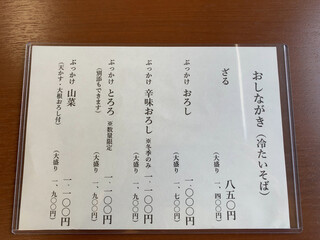 おしながき（冷たいそば）
ざる 八五〇円
（大盛り 一、四〇〇円）
ぶっかけ おろし 一、〇〇〇円
（大盛り 一、七〇〇円）
ぶっかけ 辛味おろし ※冬季のみ 一、一〇〇円
（大盛り 一、九〇〇円）
ぶっかけ とろろ ※数量限定 一、一〇〇円
（別添もできます）（大盛り 一、九〇〇円）
ぶっかけ 山菜 一、一〇〇円
（天かす・大根おろし付）（大盛り 一、九〇〇円）